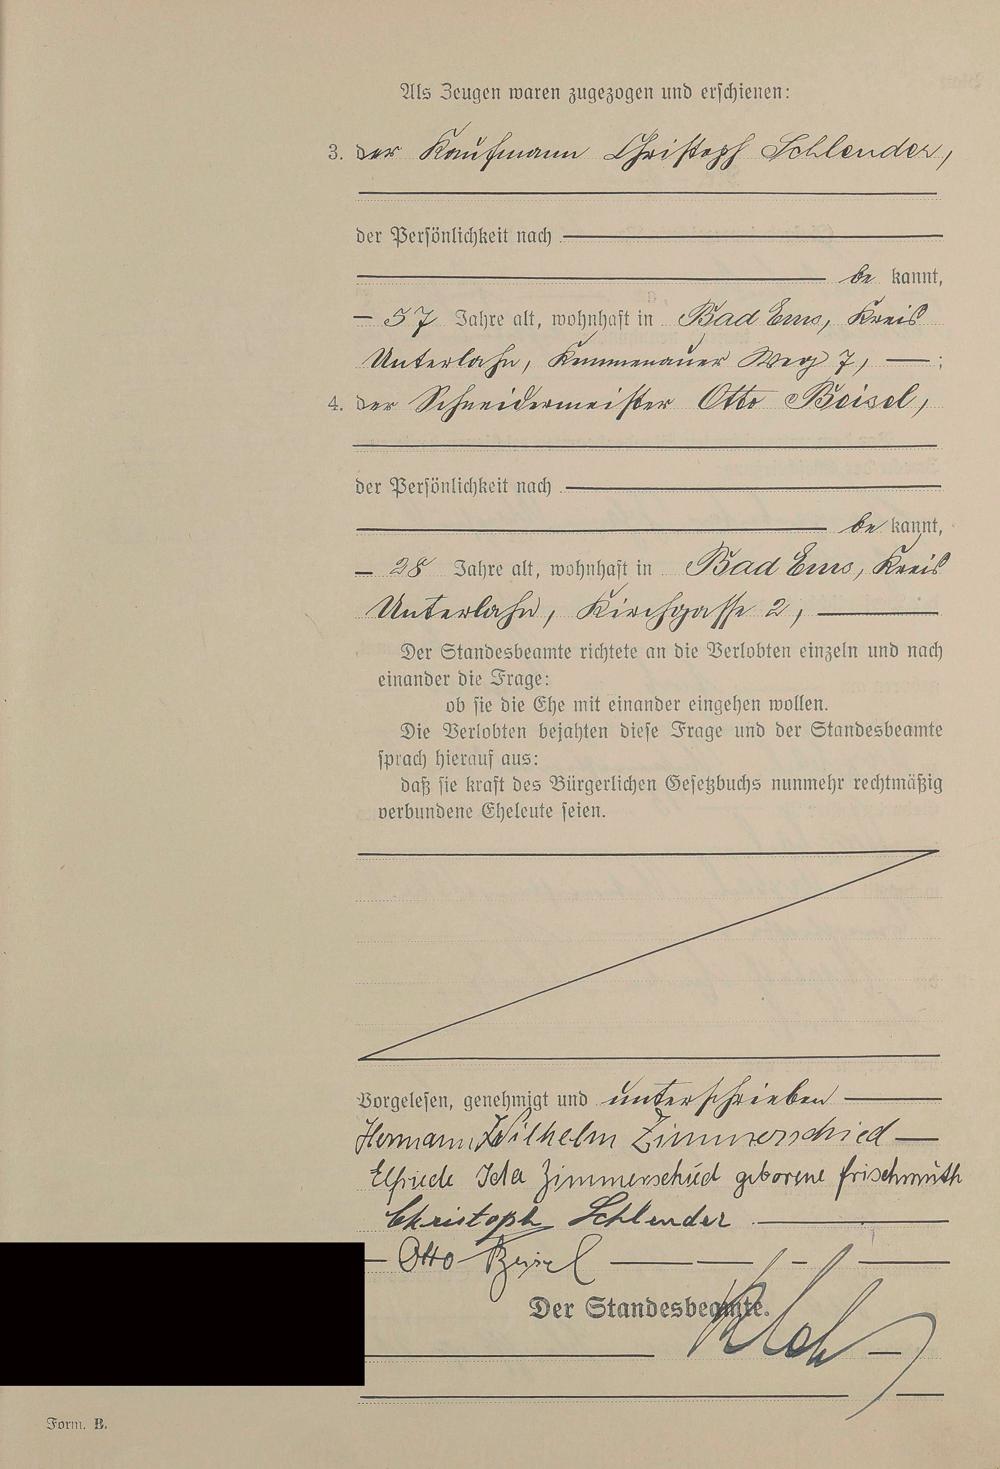 Als Zeugen waren zugezogen und erschienen:
3. der Kaufmann Christoph Schlender,
der Persönlichkeit nach
be kannt,
57 Jahre alt, wohnhaft in Bad Ems, Kreis
Unterlahn, Kemmenauer Weg 7, ;
4. der Schneidermeister Otto Beisel,
der Persönlichkeit nach
be kannt,
28 Jahre alt, wohnhaft in Bad Ems, Kreis
Unterlahn, Kirchgasse 2,
Der Standesbeamte richtete an die Verlobten einzeln und nach
einander die Frage:
ob sie die Ehe mit einander eingehen wollen.
Die Verlobten bejahten diese Frage und der Standesbeamte
sprach hierauf aus:
daß sie kraft des Bürgerlichen Gesetzbuchs nunmehr rechtmäßig
verbundene Eheleute seien.
Vorgelesen, genehmigt und unterschrieben
Hermann Wilhelm Zimmerschied
Elfriede Ida Zimmerschied geborene Frischmuth
Christoph Schlender
Otto Beisel
Der Standesbeamte.
Form. B.